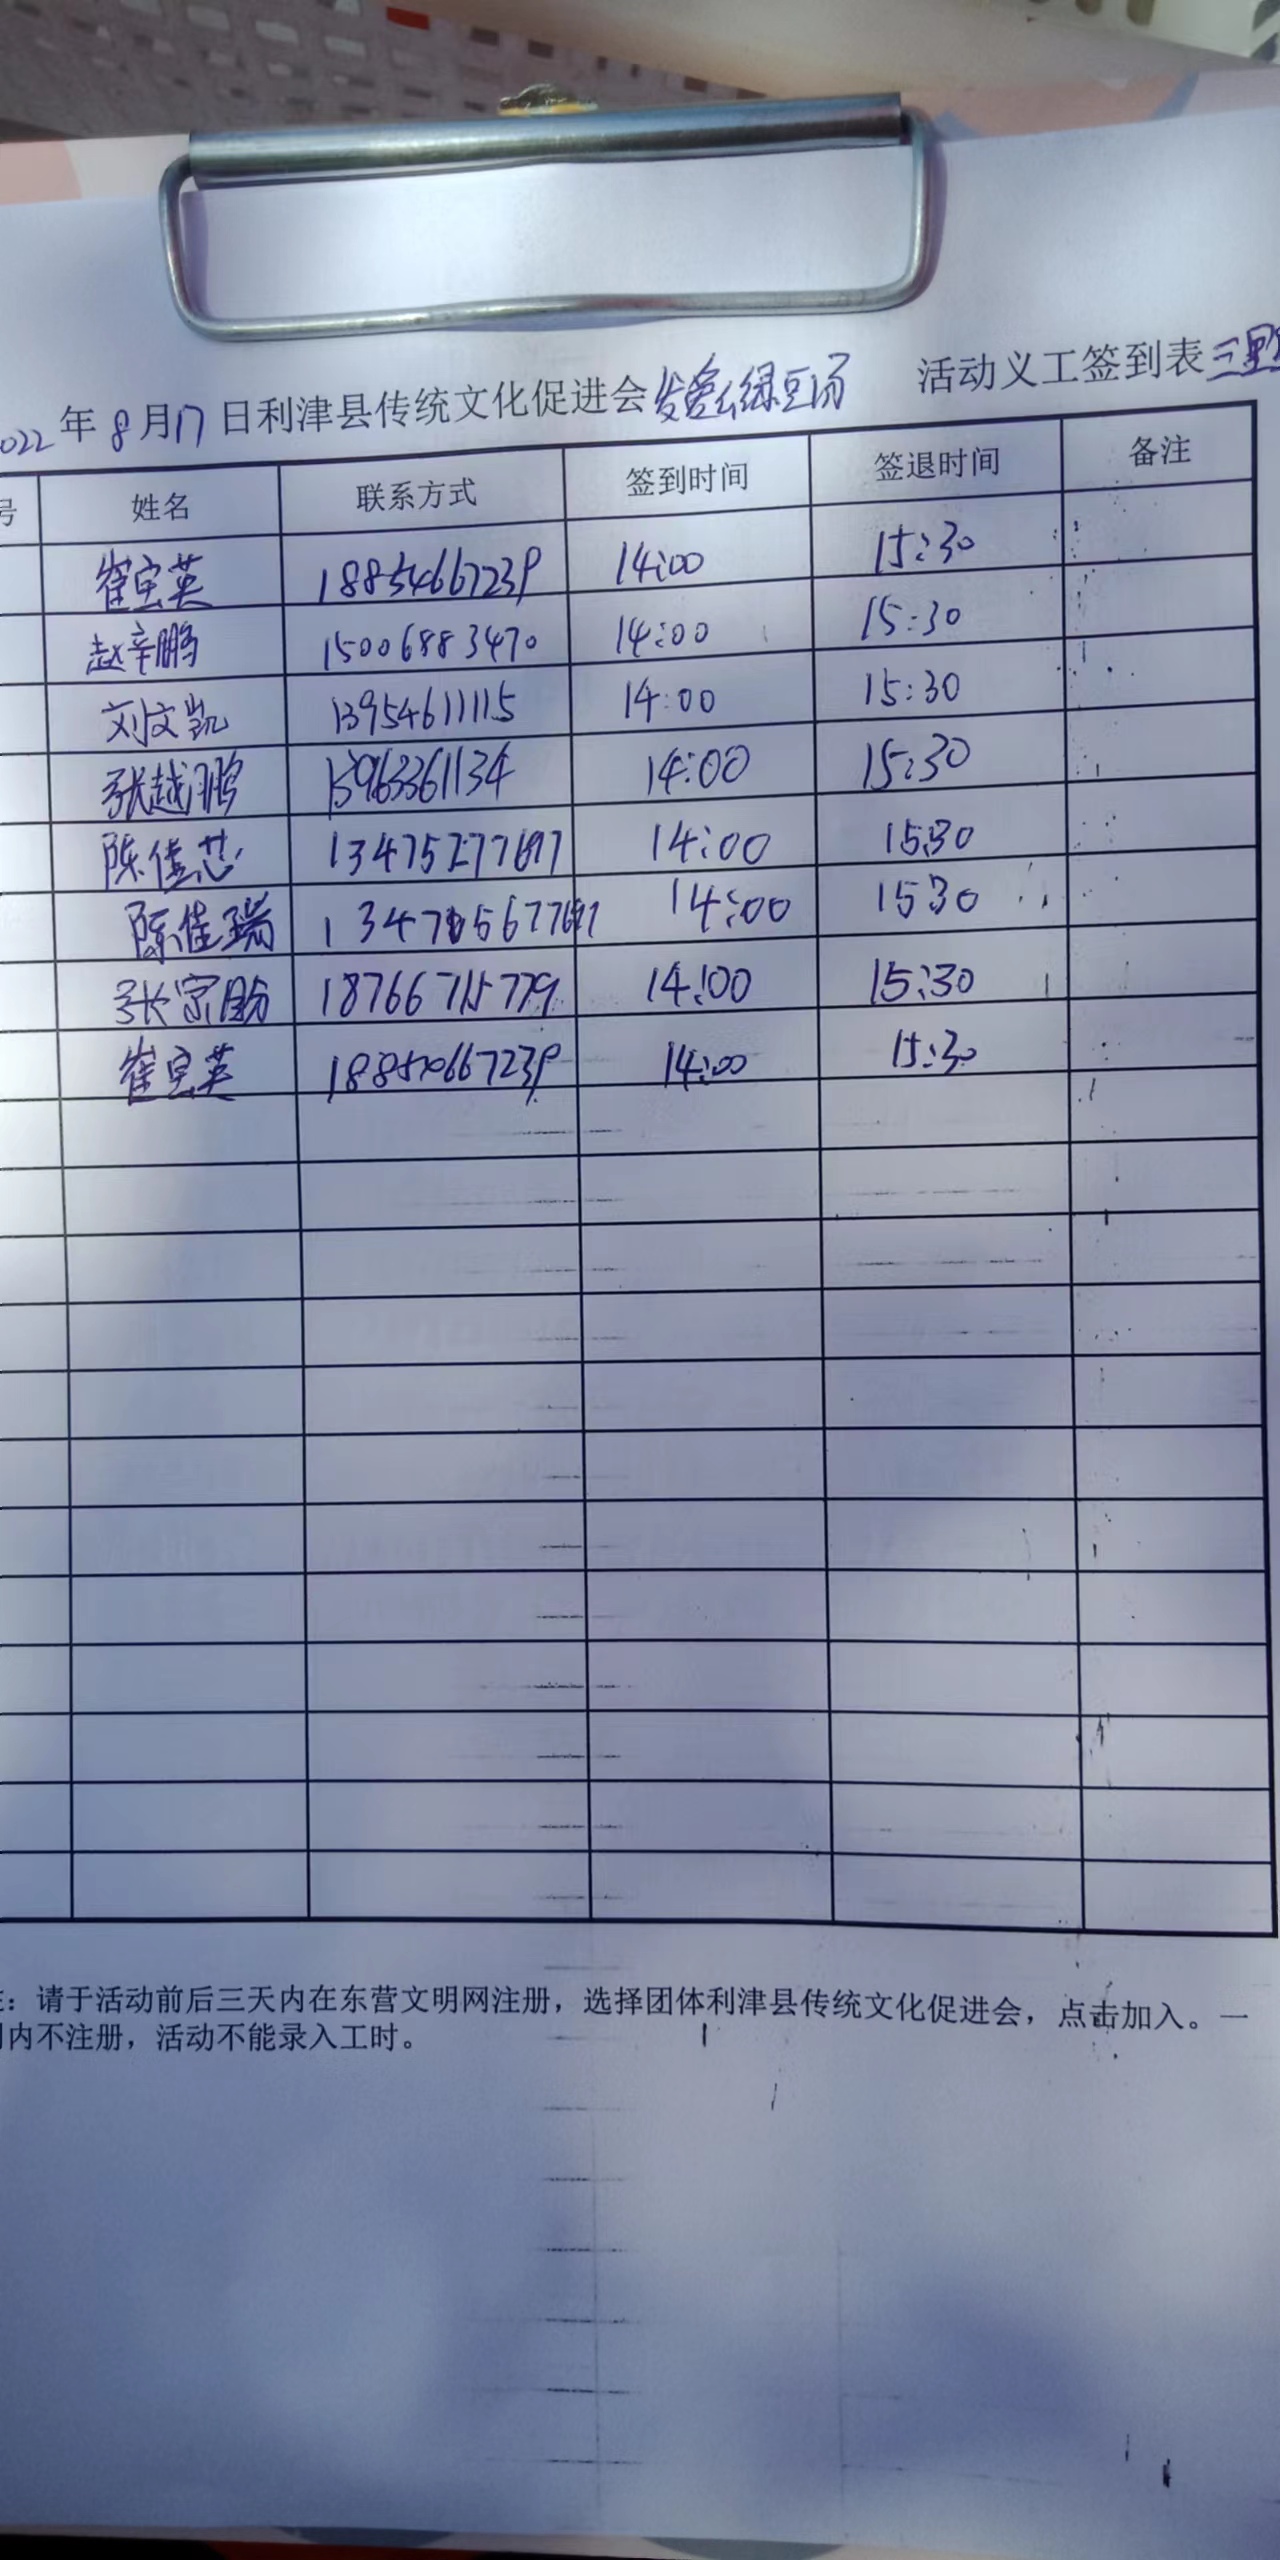 2022 年 8 月 17 日利津县传统文化促进会发爱心绿豆汤 活动义工签到表 三里
号 姓名 联系方式 签到时间 签退时间 备注
崔宝英 18854667239 14:00 15:30
赵辛鹏 15006883470 14:00 15:30
刘文凯 13954611115 14:00 15:30
张越鹏 13963361134 14:00 15:30
陈佳芯 14:00 15:30
陈佳瑞 14:00 15:30
张宗 14:00 15:30
崔宝英 14:00 15:30
注：请于活动前后三天内在东营文明网注册，选择团体利津县传统文化促进会，点击加入。一
内不注册，活动不能录入工时。